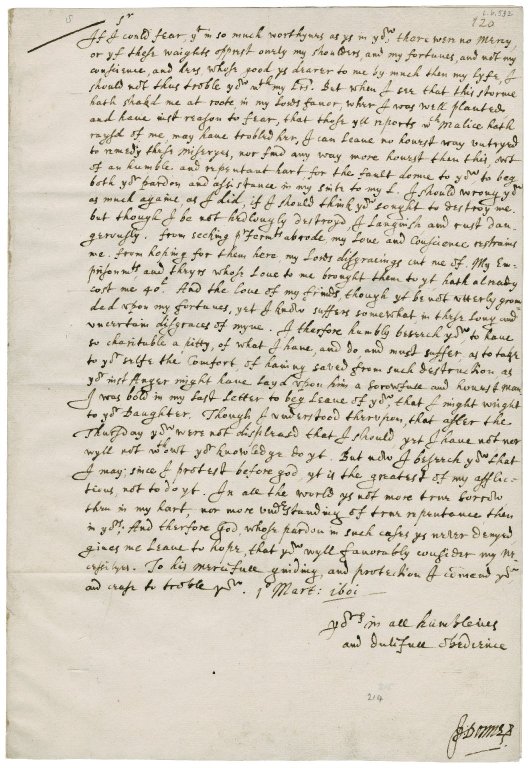 L.b.532
18
120
Sr
If I could fear, yt in so much worthynes as ys in yow, thar were no Mercy,
or yf these waights opprest onely my shoulders, and my fortunes, and not my
conscience, and hers, whose good ys dearer to me by much then my lyfe, I
should not thus troble yow wth my lrs. But when I see that this storme
hath shak'd me at roote in my Lords favor, wher I was well planted
and have iust reason to fear, that those yll reports wch Malice hath
rays'd of me may have trobled hers, I can leave no honest way untryed
to remedy these miseryes, nor find any way more honest then this, out
of an humble and repentant hart for the fault donne to yow to beg
both yor pardon and assistance in my suite to my L. I should wrong yow
as much againe, as I did, if I should think yow sought to destroy me.
but though I be not hedlongly destroyd, I languish and rust dan-
gerously. From seeking pferments abrode, my love and conscience restrains
me. from hoping for them here my Lords disgracings cut me of. My Em-
prisonmts and theyrs whose love to me brought them to yt hath already
cost me 40l. And the love of my frinds, though yt be not utterly groun
ded upon my fortunes, yet I know suffers somewhat in these long and
uncertain disgraces of myne. I therfore humbly beseech yow to have
so charitable a pitty, of what I have, and do and must suffer, as to take
to yor selfe the comfort of having saved from such destruction as
yor iust Anger might have layd upon him a sorowfull and honest man
I was bold in my last Letter to beg leave of yow that I might wright
to yor Daughter. Though I understood therupon, that after the
Thursday yow were not displeasd that I should yet I have not nor
wyll not wthowt yor knowledge do yt. But now I beseech yow that
I may; since I protest before god, yt is the greatest of my afflic-
tions not to do yt. In all the world ys not more true sorrow
then in my hart, nor more understanding of true repentance then
in yors. And therfore God, whose pardon in such cases ys never denyed
gives me leave to hope, that yow wyll favorably consider my ne-
cessityes. To his mercifull guiding and protection I comend yow
and cease to troble yow. 1o Mart: 1601
Yors in all humblenes
and dutifull obedience
214
J: Donne